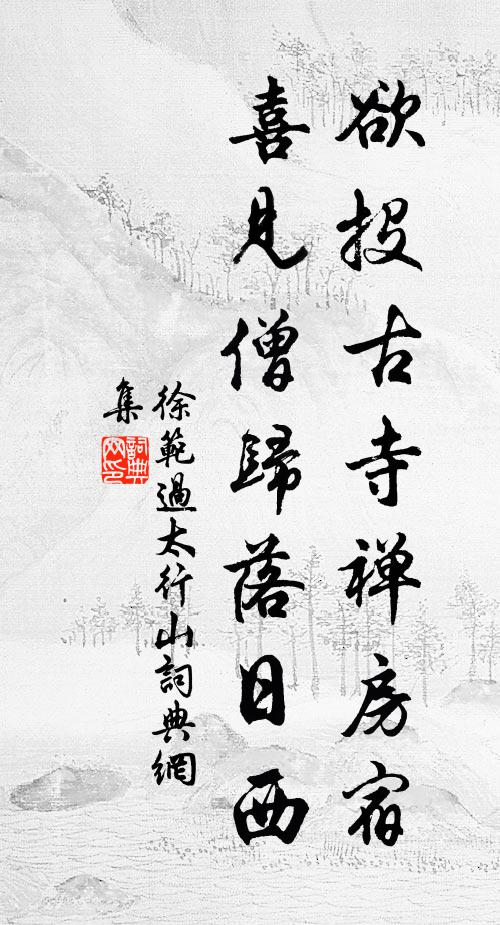 欲投古寺禅房宿
喜見僧歸落日西
徐範過太行山詞典網
集
詞典网印